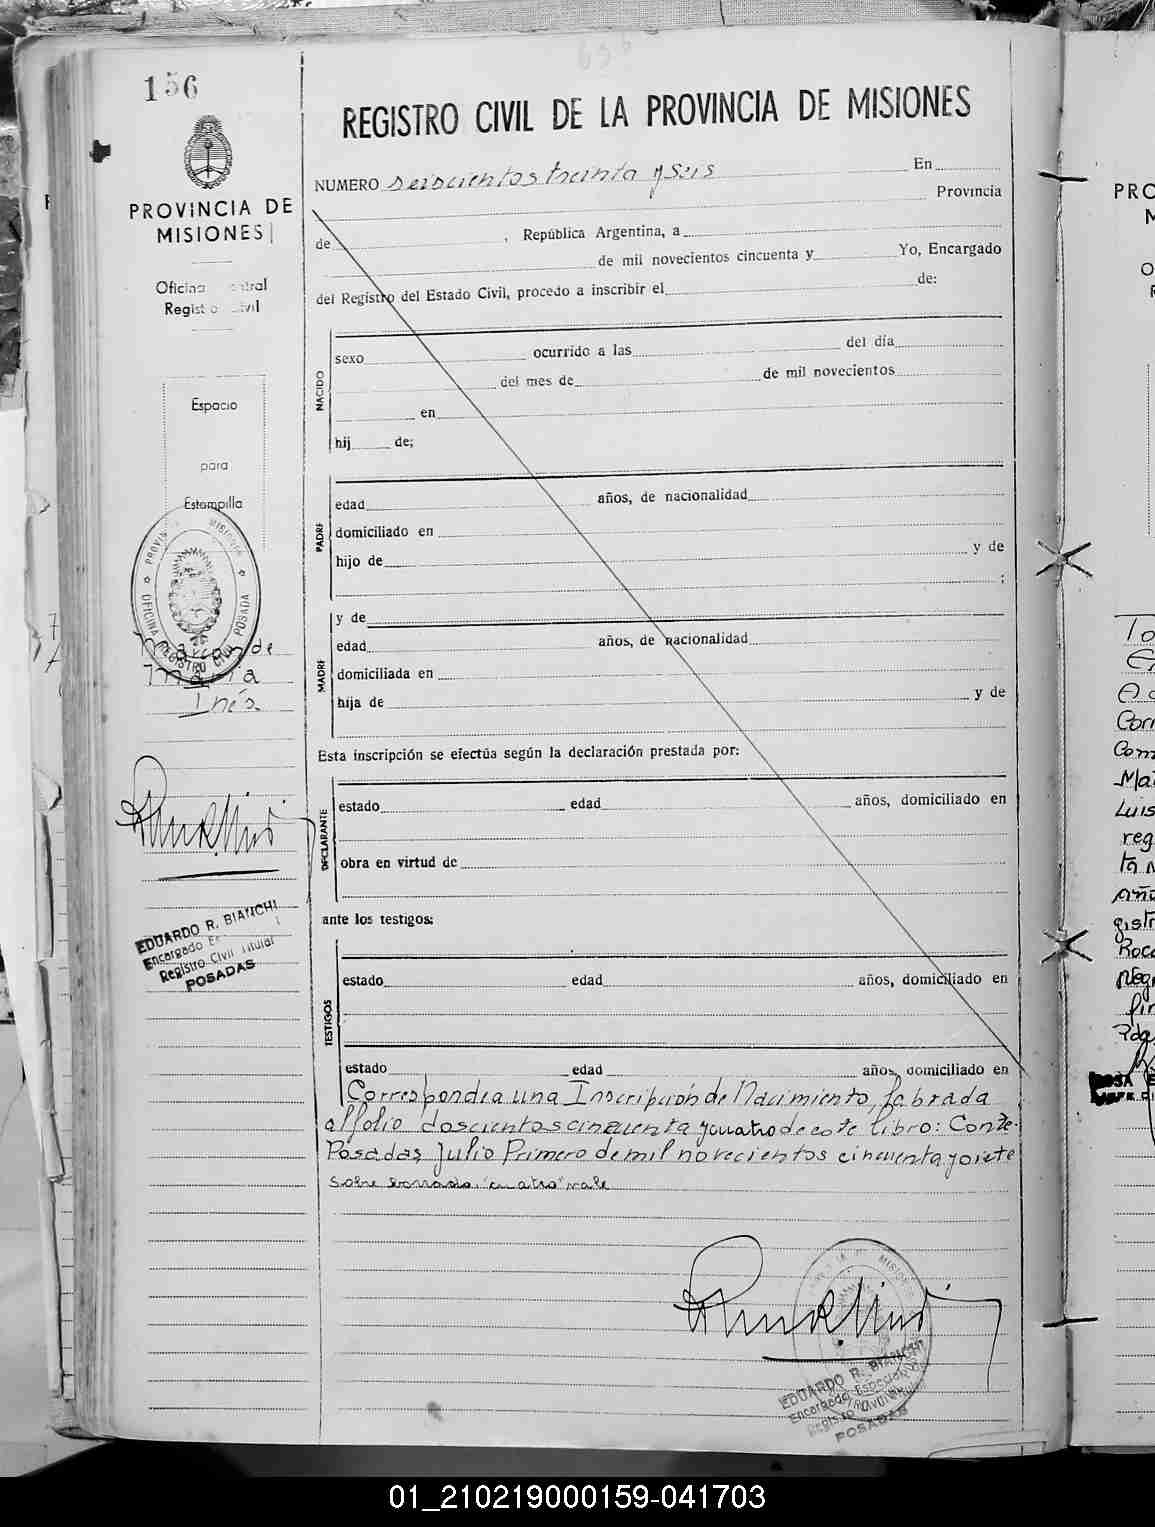 636
156
REGISTRO CIVIL DE LA PROVINCIA DE MISIONES
PROVINCIA DE
MISIONES
Oficina Central
Registro Civil
Espacio
para
Estampilla
PROVINCIA MISIONES
OFICINA REGISTRO CIVIL POSADAS
de
María
Inés
EDUARDO R. BIANCHI
Encargado
Registro Civil Titular
POSADAS
NUMERO seiscientos treinta y seis En
Provincia
de , República Argentina, a
de mil novecientos cincuenta y Yo, Encargado
del Registro del Estado Civil, procedo a inscribir el de:
NACIDO
sexo ocurrido a las del día
del mes de de mil novecientos
en
hij de;
PADRE
edad años, de nacionalidad
domiciliado en
hijo de y de
;
y de
MADRE
edad años, de nacionalidad
domiciliada en
hija de y de
Esta inscripción se efectúa según la declaración prestada por:
DECLARANTE
estado edad años, domiciliado en
obra en virtud de
ante los testigos:
TESTIGOS
estado edad años, domiciliado en
estado edad años, domiciliado en
Corresponde a una Inscripción de Nacimiento, labrada
al folio doscientos cincuenta y cuatro de este libro: Conste.
Posadas, Julio Primero de mil novecientos cincuenta y siete
sobre borrado "cuatro" vale
EDUARDO R. BIANCHI
Encargado
POSADAS
PRO
M
O
R
To
A
Corr
Com
Ma
Luis
reg
ta
año
gistr
Roca
Neg
fir
Pda
01_210219000159-041703